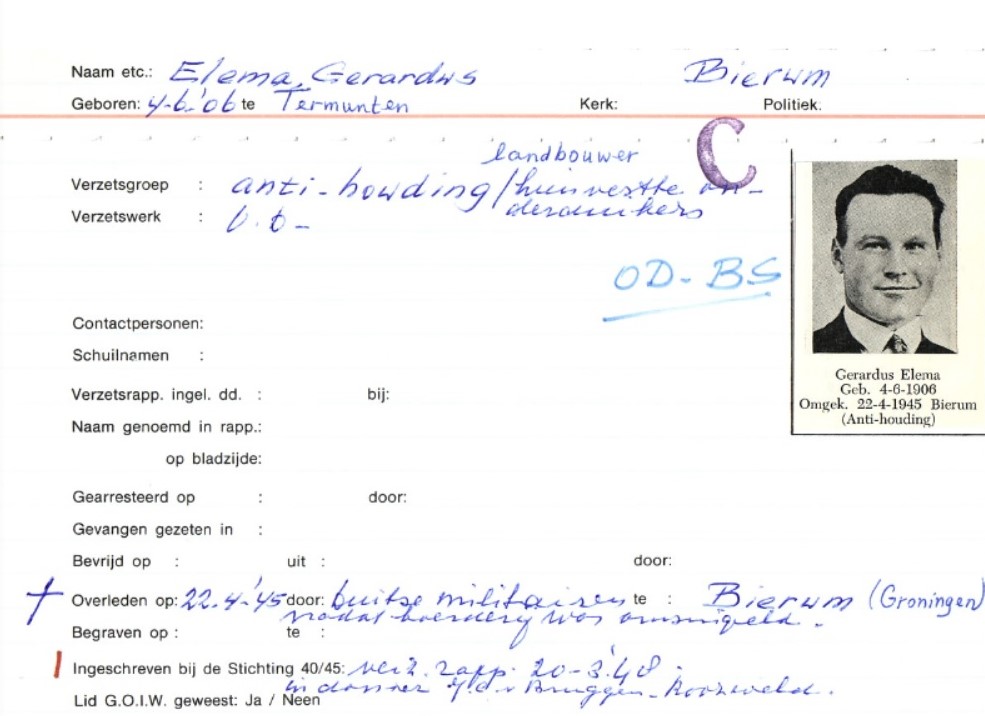 Naam etc.: Elema, Gerardus Bierum
Geboren: 4-6-'06 te Termunten Kerk: Politiek:
C
landbouwer
Verzetsgroep : anti-houding/huisvestte on-
derduikers
Verzetswerk :
OD-BS
Contactpersonen:
Schuilnamen :
Verzetsrapp. ingel. dd. : bij:
Naam genoemd in rapp.:
op bladzijde:
Gerardus Elema
Geb. 4-6-1906
Omgek. 22-4-1945 Bierum
(Anti-houding)
Gearresteerd op : door:
Gevangen gezeten in :
Bevrijd op : uit : door:
Overleden op: 22.4.'45 door: Duitse militairen te : Bierum (Groningen)
nadat boerderij was omsingeld.
Begraven op : te :
Ingeschreven bij de Stichting 40/45: verz. rapp. 20-3-'48
in dossier v. Bruggen-
Lid G.O.I.W. geweest: Ja / Neen